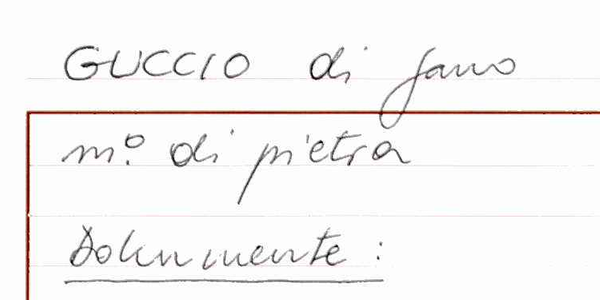 GUCCIO di Jano
m.º di pietra
Dokumente :